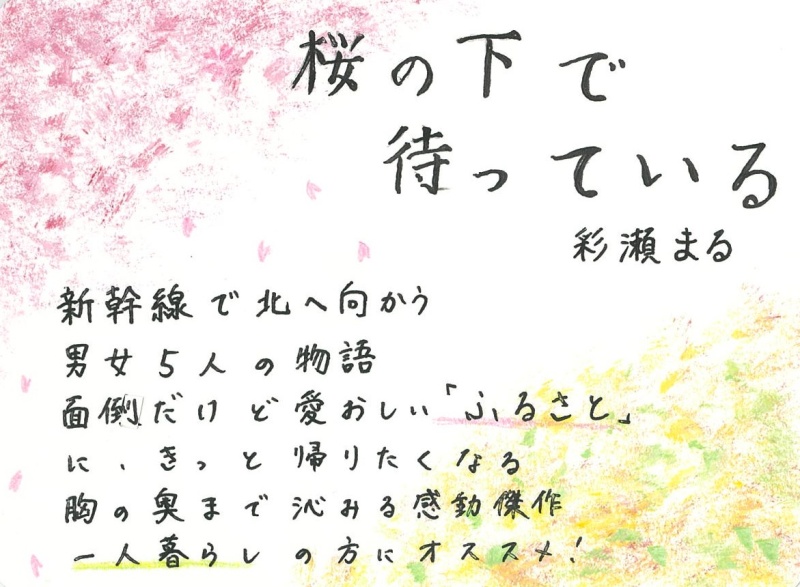 桜の下で
待っている
彩瀬まる
新幹線で北へ向かう
男女5人の物語
面倒だけど愛おしい「ふるさと」
に、きっと帰りたくなる
胸の奥まで沁みる感動傑作
一人暮らしの方にオススメ!